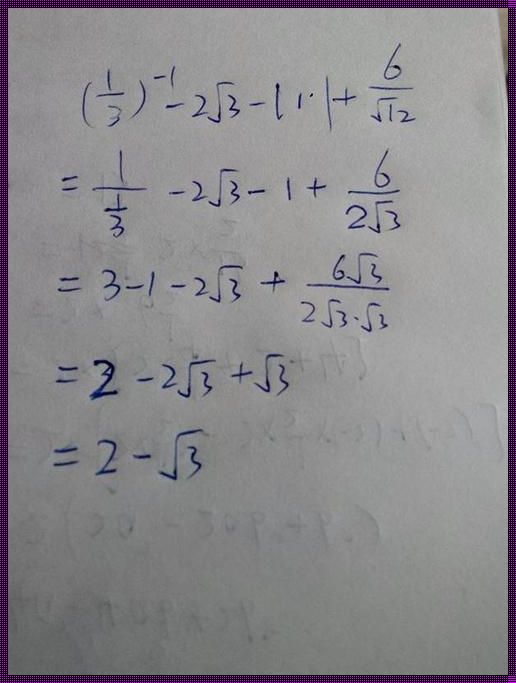 (1/3)^-1 - 2√3 - |1·| + 6/√12
= 1/(1/3) - 2√3 - 1 + 6/(2√3)
= 3 - 1 - 2√3 + 6√3/(2√3·√3)
= 2 - 2√3 + √3
= 2 - √3